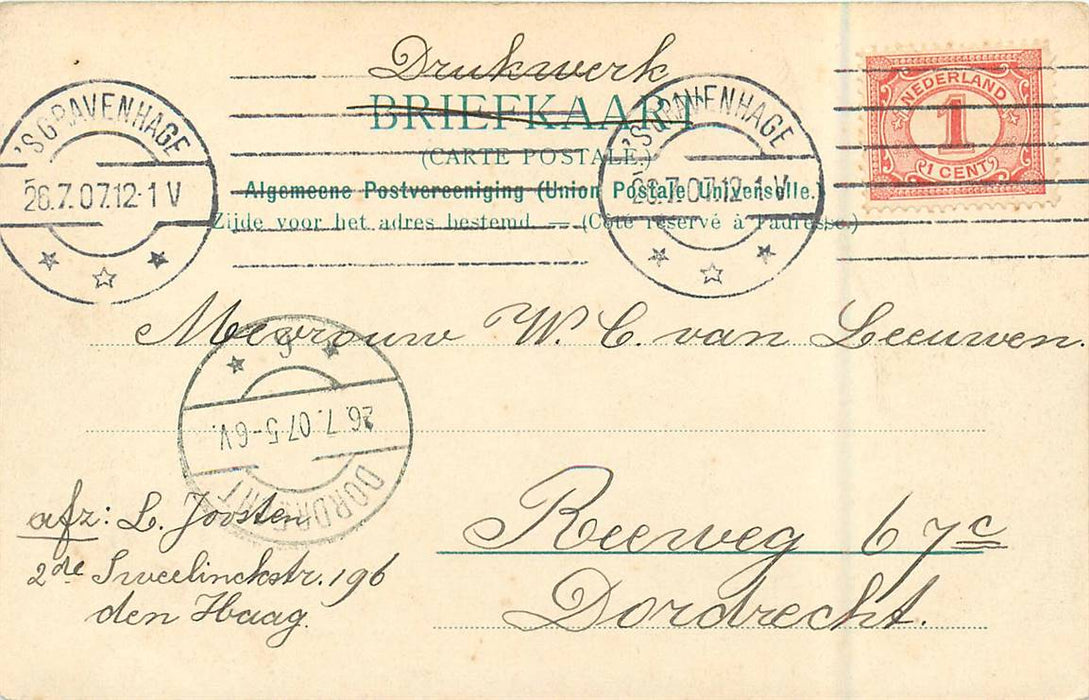 Drukwerk
BRIEFKAART
(CARTE POSTALE.)
Algemeene Postvereeniging (Union Postale Universelle.)
Zijde voor het adres bestemd. — (Côté réservé à l'adresse.)
'SGRAVENHAGE
26.7.07.12-1 V
'SGRAVENHAGE
26.7.07.12-1 V
NEDERLAND
1
1 CENT
Mevrouw W. C. van Leeuwen.
5
26.7.07 5-6V.
DORDRECHT
Reeweg 67c
Dordrecht.
afz: L. Joosten
2de Sweelinckstr. 196
den Haag.